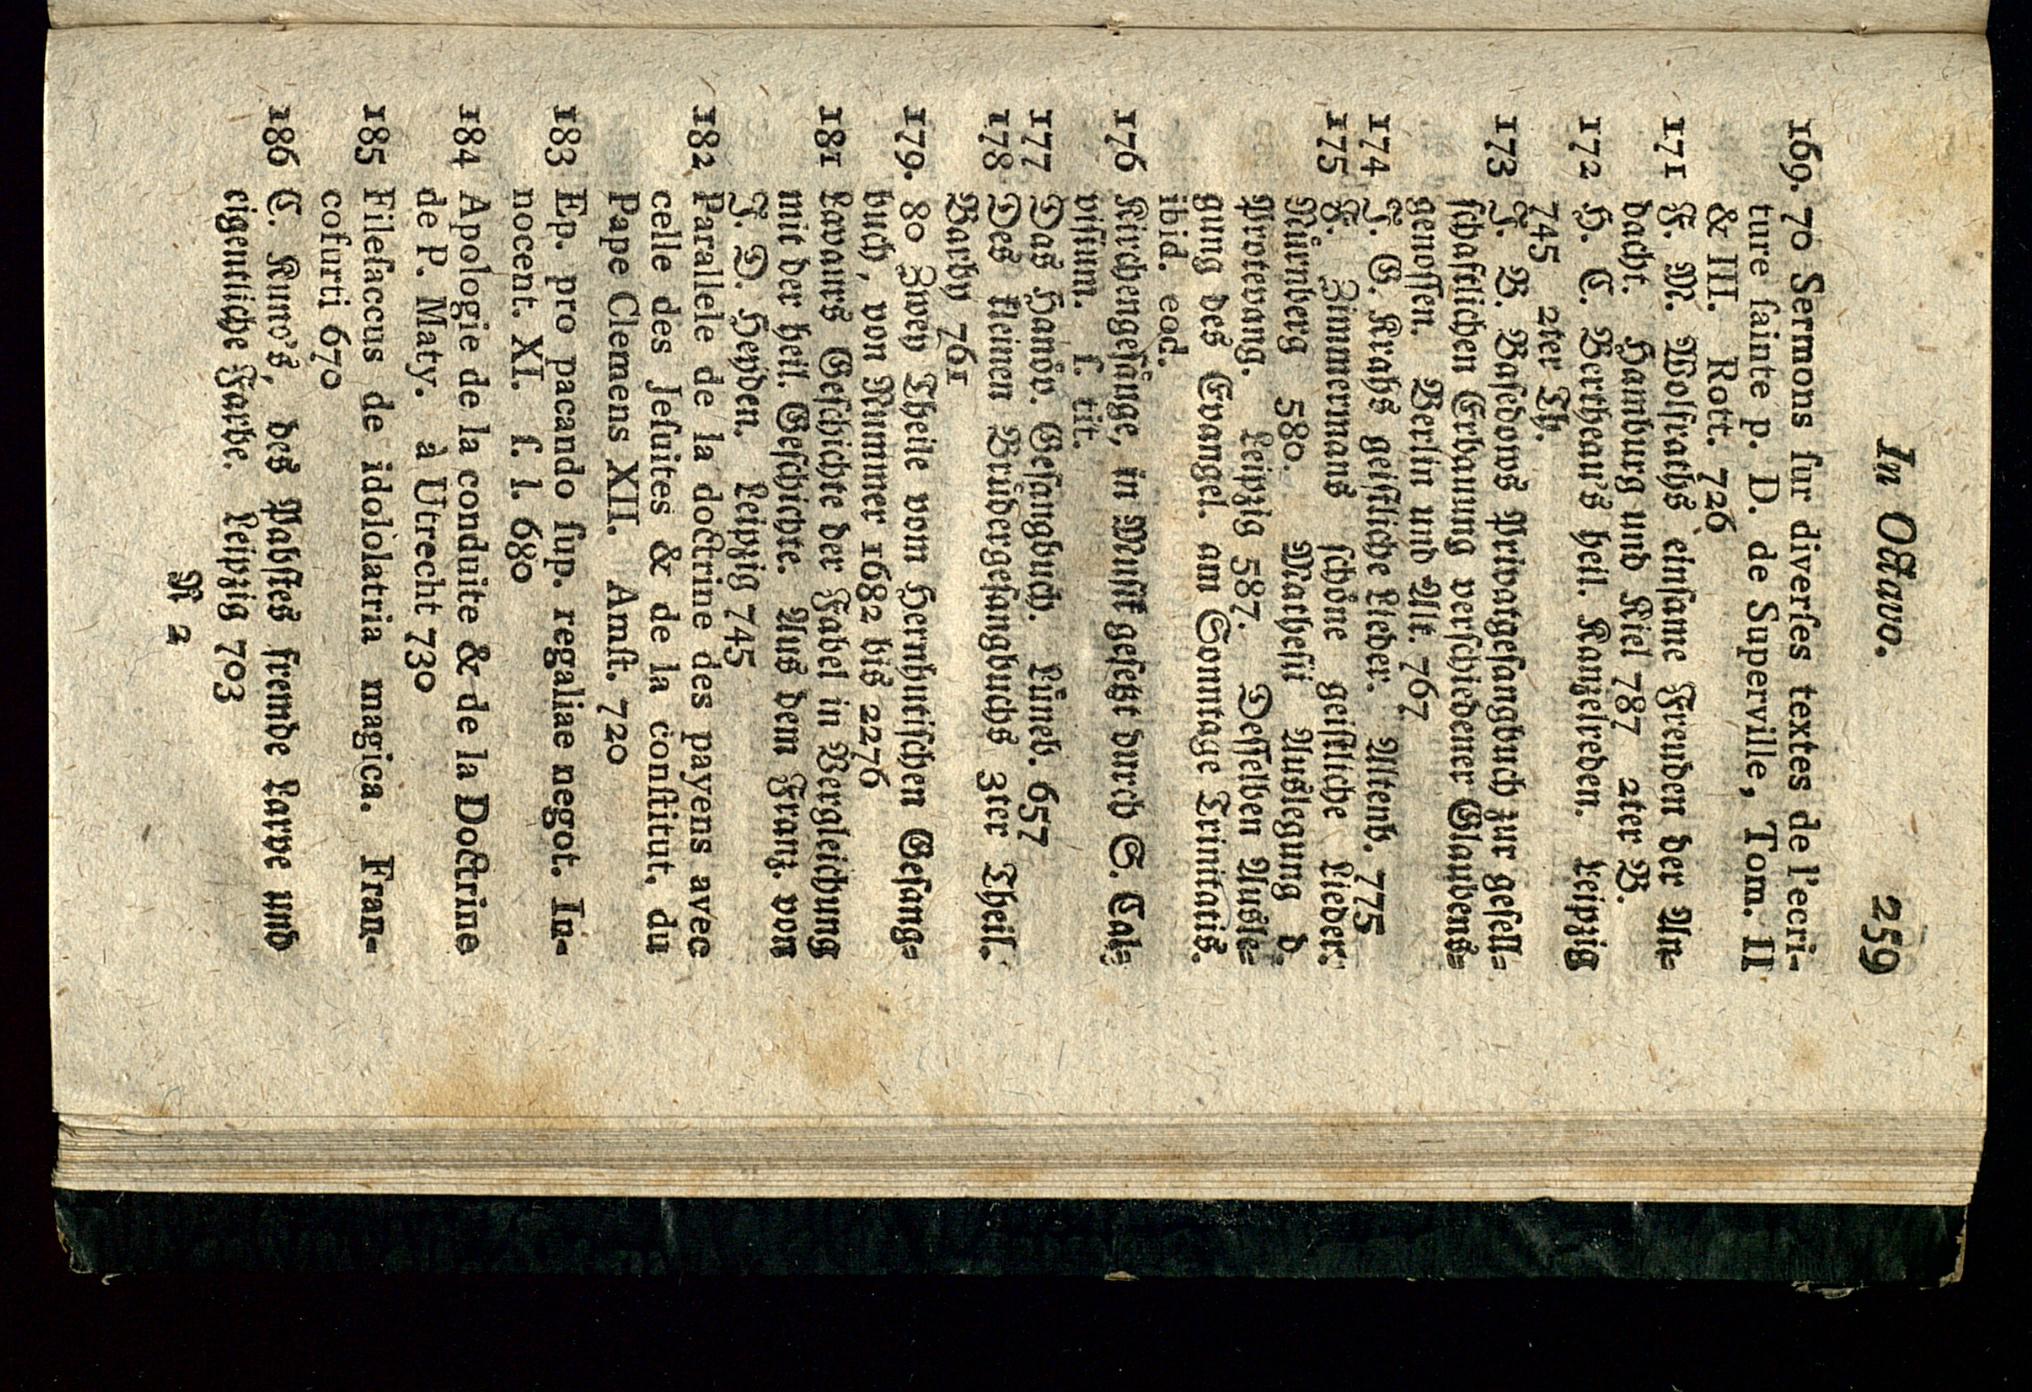 In Octavo. 259
169. 70 Sermons ſur diverſes textes de l'ecri-
ture ſainte p. D. de Superville, Tom. II
& III. Rott. 726
171 F. M. Wolfraths einſame Freuden der An-
dacht. Hamburg und Kiel 787 2ter B.
172 H. C. Bertheau's heil. Kanzelreden. Leipzig
745 2ter Th.
173 J. B. Baſedows Privatgeſangbuch zur geſell-
ſchaftlichen Erbauung verſchiedener Glaubens-
genoſſen. Berlin und Alt. 767
174 J. G. Krahs geiſtliche Lieder. Altenb. 775
175 F. Zimmermans ſchöne geiſtliche Lieder.
Nürnberg 580. Matheſii Auslegung d.
Protevang. Leipzig 587. Deſſelben Ausle-
gung des Evangel. am Sonntage Trinitatis.
ibid. eod.
176 Kirchengeſänge, in Muſik geſetzt durch S. Cal-
viſium. ſ. tit.
177 Das Hanöv. Geſangbuch. Lüneb. 657
178 Des kleinen Brüdergeſangbuchs 3ter Theil.
Barby 761
179. 80 Zwey Theile vom Hernhutiſchen Geſang-
buch, von Nummer 1682 bis 2276
181 Lavaurs Geſchichte der Fabel in Vergleichung
mit der heil. Geſchichte. Aus dem Franz. von
J. D. Heyden. Leipzig 745
182 Parallele de la doctrine des payens avec
celle des Jeſuites & de la conſtitut. du
Pape Clemens XII. Amſt. 720
183 Ep. pro pacando ſup. regaliae negot. In-
nocent. XI. ſ. l. 680
184 Apologie de la conduite & de la Doctrine
de P. Maty. à Utrecht 730
185 Fileſaccus de idololatria magica. Fran-
cofurti 670
186 C. Kuno's, des Pabſtes fremde Larve und
eigentliche Farbe. Leipzig 703
R 2